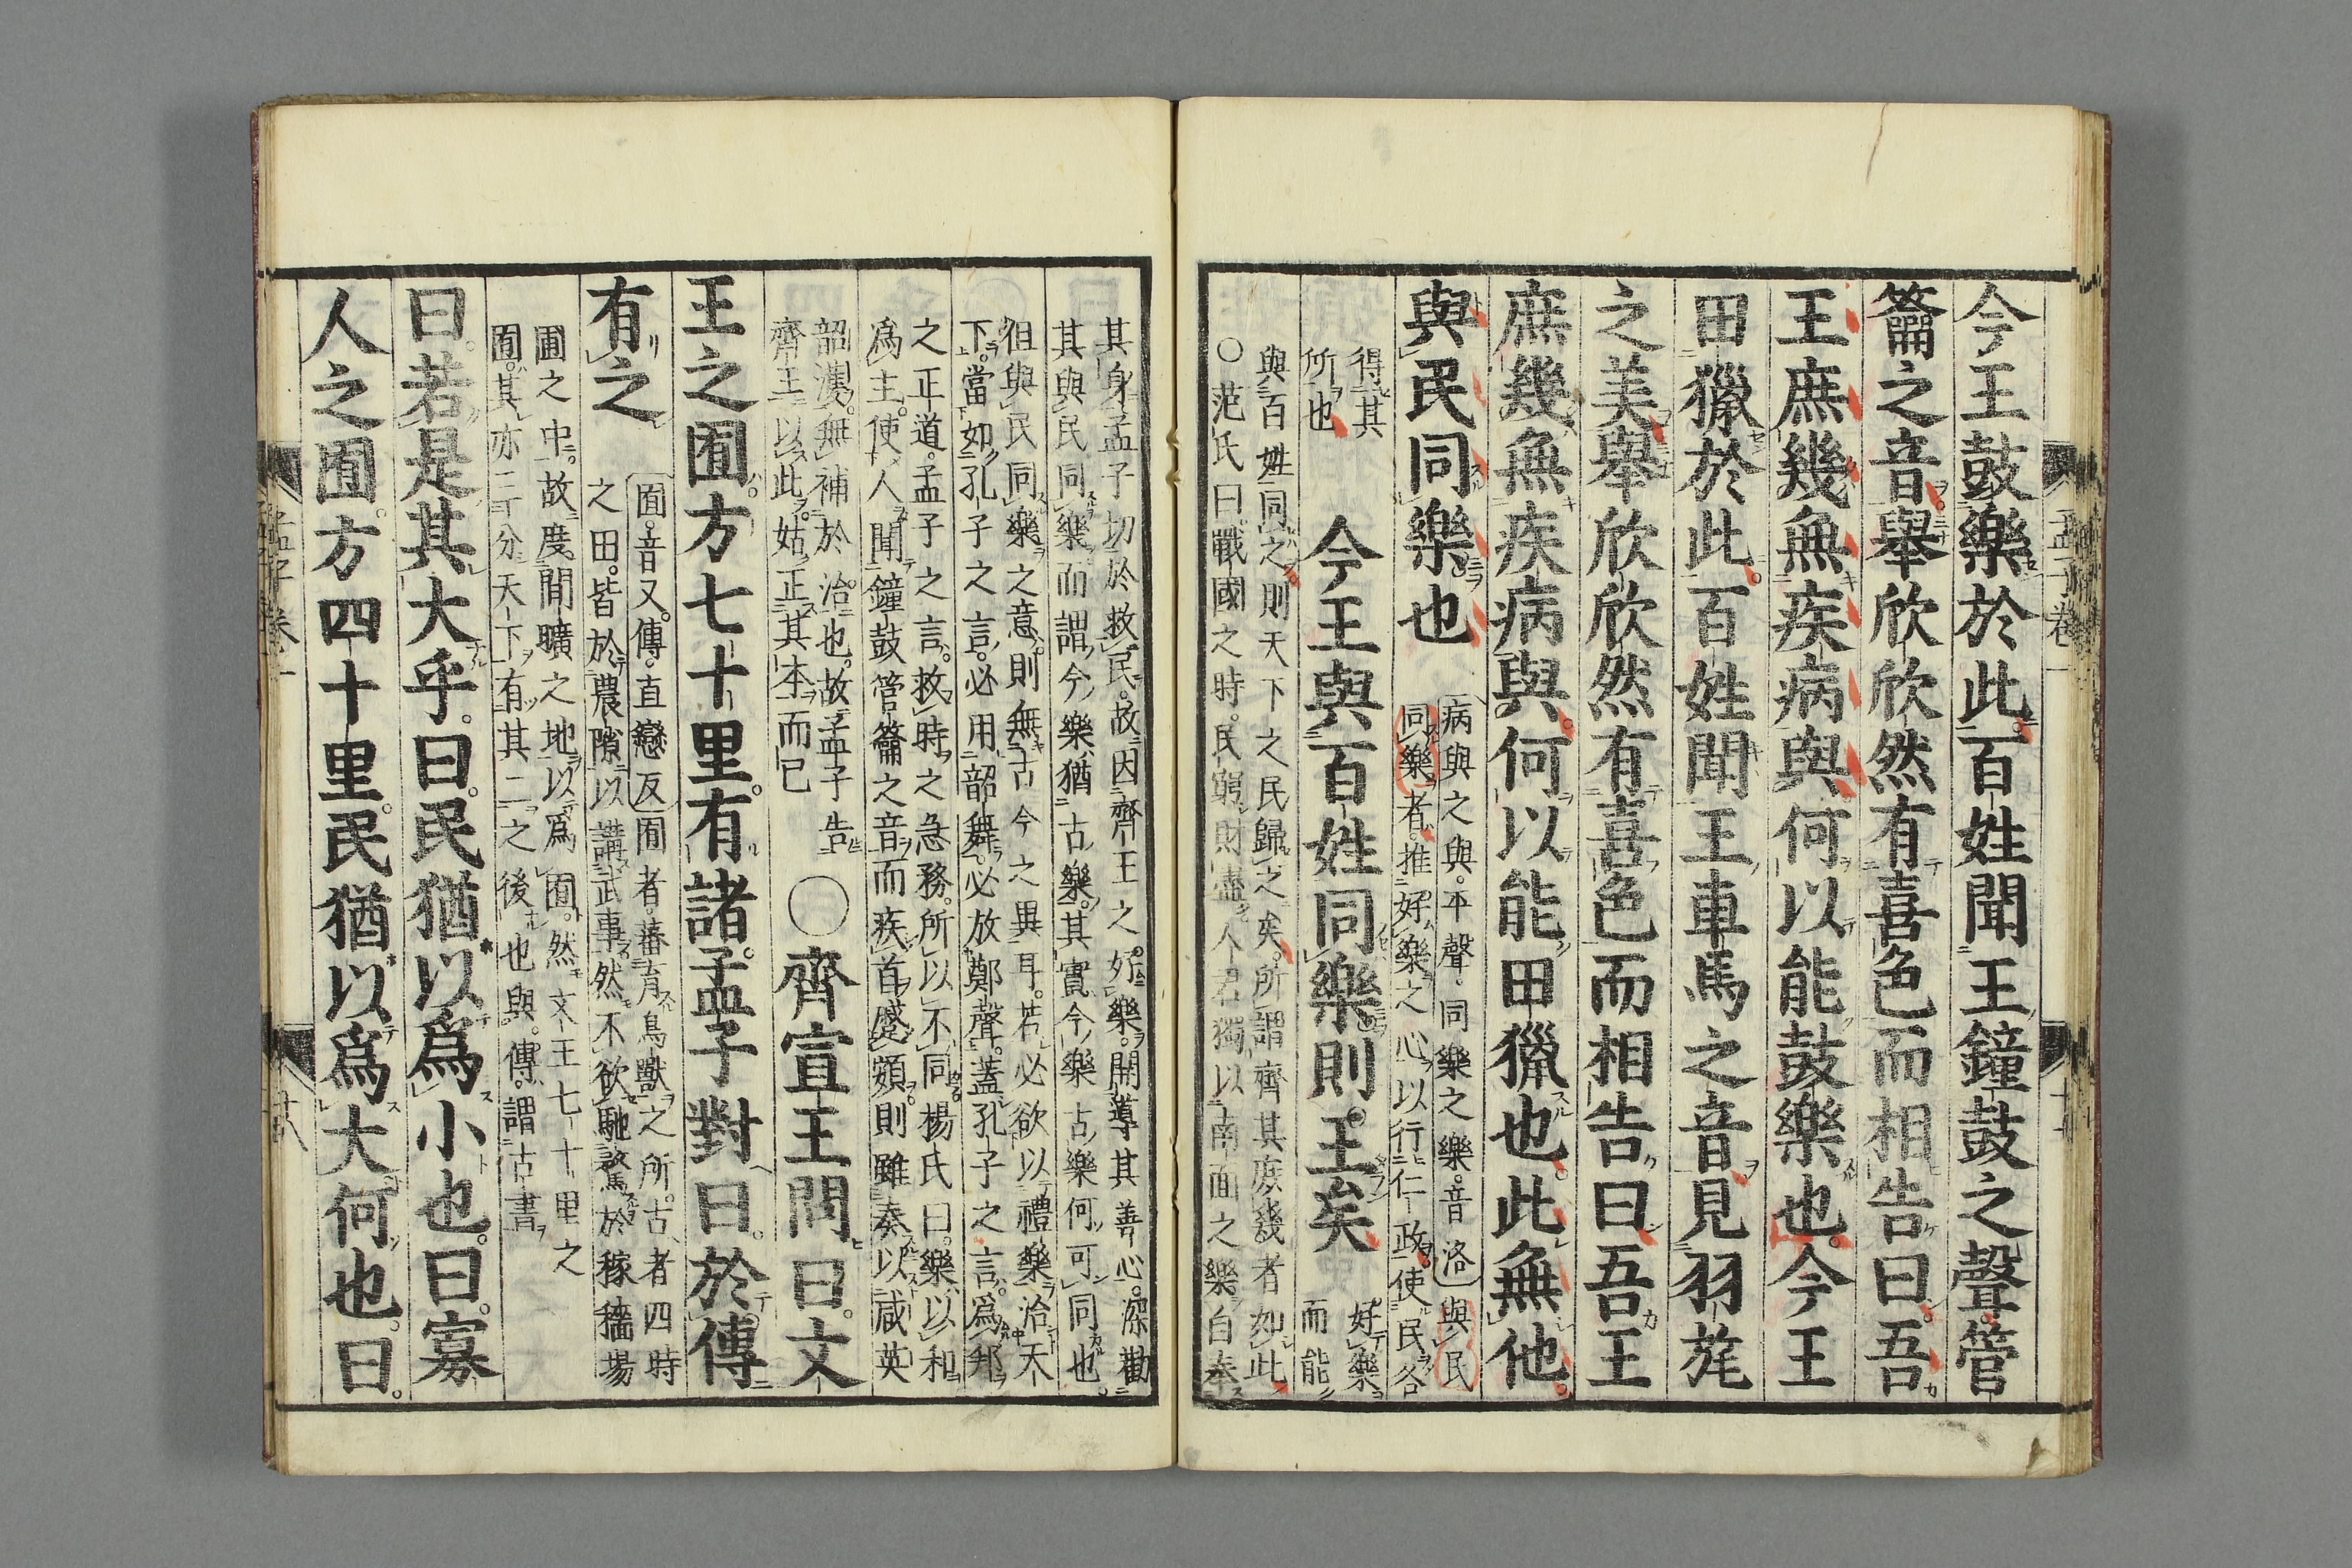 今王鼓樂於此百姓聞王鐘鼓之聲管
籥之音舉欣欣然有喜色而相告曰吾
王庶幾無疾病與何以能鼓樂也今王
田獵於此百姓聞王車馬之音見羽旄
之美舉欣欣然有喜色而相告曰吾王
庶幾無疾病與何以能田獵也此無他
與民同樂也
病與之與平聲同樂之樂音洛與民
同樂者推好樂之心以行仁政使民各
得其
所也
今王與百姓同樂則王矣
好樂
而能
與百姓同之則天下之民歸之矣所謂齊其庶幾者如此
○范氏曰戰國之時民窮財盡人君獨以南面之樂自奉
其身孟子切於救民故因齊王之好樂開導其善心深勸
其與民同樂而謂今樂猶古樂其實今樂古樂何可同也
但與民同樂之意則無古今之異耳若必欲以禮樂治天
下當如孔子之言必用韶舞必放鄭聲蓋孔子之言爲邦
之正道孟子之言救時之急務所以不同楊氏曰樂以和
爲主使人聞鐘鼓管籥之音而疾首蹙頞則雖奏以咸英
韶濩無補於治也故孟子告
齊王以此姑正其本而已
○齊宣王問曰文
王之囿方七十里有諸孟子對曰於傳
有之
囿音又傳直戀反囿者蕃育鳥獸之所古者四時
之田皆於農隙以講武事然不欲馳騖於稼穡場
圃之中故度閒曠之地以爲囿然文王七十里之
囿其亦三分天下有其二之後也與傳謂古書
曰若是其大乎曰民猶以爲小也曰寡
人之囿方四十里民猶以爲大何也曰
孟子卷一